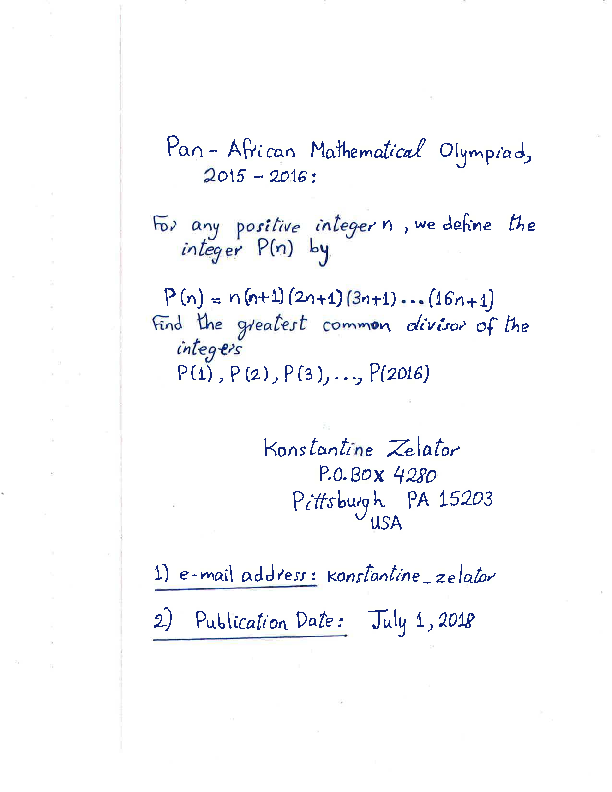 Pan-African Mathematical Olympiad,
2015-2016:
For any positive integer n, we define the
integer P(n) by
P(n) = n(n+1)(2n+1)(3n+1)...(16n+1)
Find the greatest common divisor of the
integers
P(1), P(2), P(3), ..., P(2016)
Konstantine Zelator
P.O. BOX 4280
Pittsburgh PA 15203
USA
1) e-mail address: konstantine_zelator
2) Publication Date: July 1, 2018